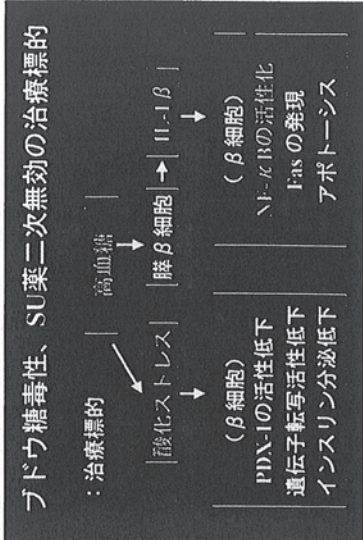 ブドウ糖毒性、SU薬二次無効の治療標的
: 治療標的
高血糖
酸化ストレス
膵β細胞
IL-1β
(β細胞)
PDX-1の活性低下
遺伝子転写活性低下
インスリン分泌低下
(β細胞)
NF-κBの活性化
Fasの発現
アポトーシス